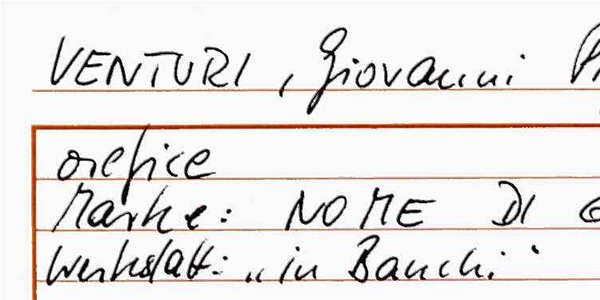 VENTURI, Giovanni
orefice
Marke: NOME DI
Werkstatt: "in Banchi"